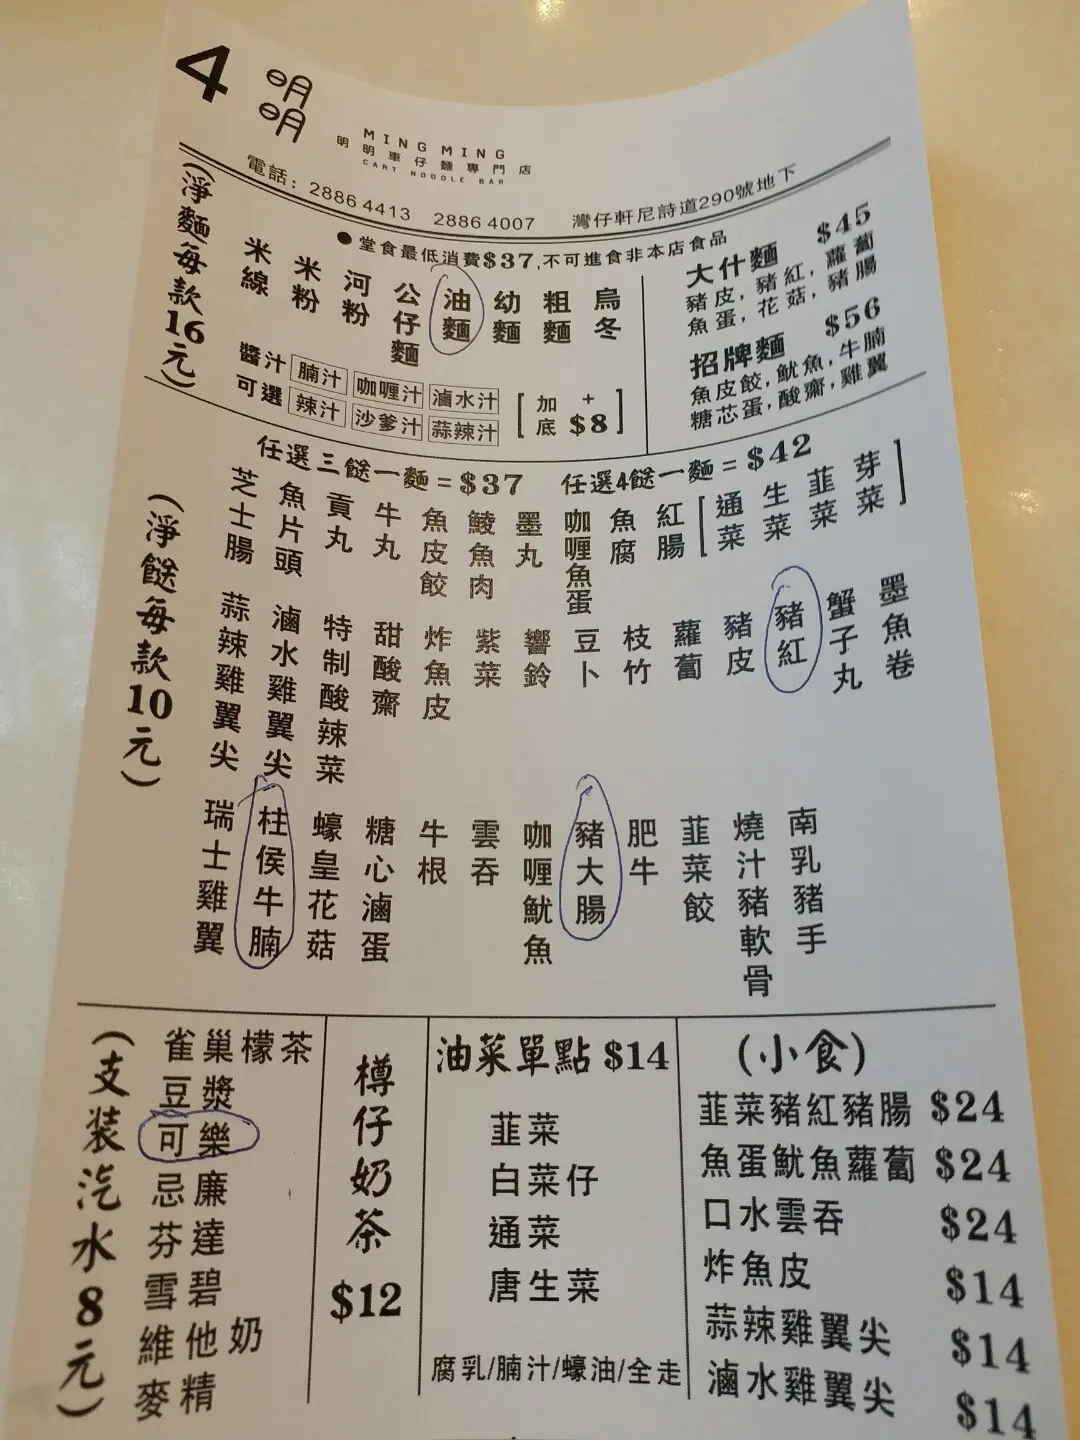 4
明明
MING MING
明明車仔麵專門店
CART NOODLE BAR
電話: 2886 4413 2886 4007 灣仔軒尼詩道290號地下
●堂食最低消費$37,不可進食非本店食品
(淨麵每款16元)
米線
米粉
河粉
公仔麵
油麵
幼麵
粗麵
烏冬
醬汁可選
腩汁 咖喱汁 滷水汁
辣汁 沙爹汁 蒜辣汁
[加底 +$8]
大什麵 $45
豬皮,豬紅,蘿蔔
魚蛋,花菇,豬腸
招牌麵 $56
魚皮餃,魷魚,牛腩
糖芯蛋,酸齋,雞翼
任選三餸一麵=$37 任選4餸一麵=$42
(淨餸每款10元)
芝士腸
魚片頭
貢丸
牛丸
魚皮餃
鯪魚肉
墨丸
咖喱魚蛋
魚腐
紅腸
[通菜
生菜
韮菜
芽菜]
蒜辣雞翼尖
滷水雞翼尖
特制酸辣菜
甜酸齋
炸魚皮
紫菜
響鈴
豆卜
枝竹
蘿蔔
豬皮
豬紅
蟹子丸
墨魚卷
瑞士雞翼
柱侯牛腩
蠔皇花菇
糖心滷蛋
牛根
雲吞
咖喱魷魚
豬大腸
肥牛
韮菜餃
燒汁豬軟骨
南乳豬手
(支装汽水8元)
雀巢檬茶
豆漿
可樂
忌廉
芬達
雪碧
維他奶
麥精
樽仔奶茶
$12
油菜單點 $14
韮菜
白菜仔
通菜
唐生菜
腐乳/腩汁/蠔油/全走
(小食)
韮菜豬紅豬腸 $24
魚蛋魷魚蘿蔔 $24
口水雲吞 $24
炸魚皮 $14
蒜辣雞翼尖 $14
滷水雞翼尖 $14